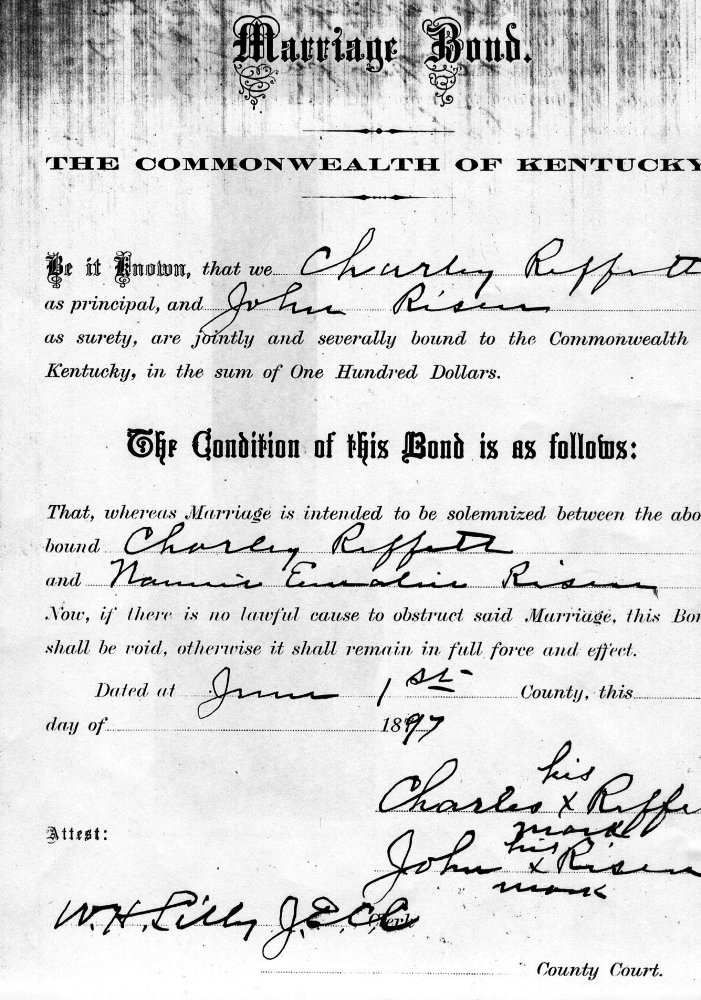 Marriage Bond.
THE COMMONWEALTH OF KENTUCKY
Be it Known, that we Charley Reffett
as principal, and John Risen
as surety, are jointly and severally bound to the Commonwealth
Kentucky, in the sum of One Hundred Dollars.
The Condition of this Bond is as follows:
That, whereas Marriage is intended to be solemnized between the abo
bound Charley Reffett
and Nannie Emaline Risen
Now, if there is no lawful cause to obstruct said Marriage, this Bon
shall be void, otherwise it shall remain in full force and effect.
Dated at June 1st County, this
day of 1897
his
Charles x Reffe
mark
Attest:
his
John x Risen
mark
W.H. Lilly Clerk
County Court.